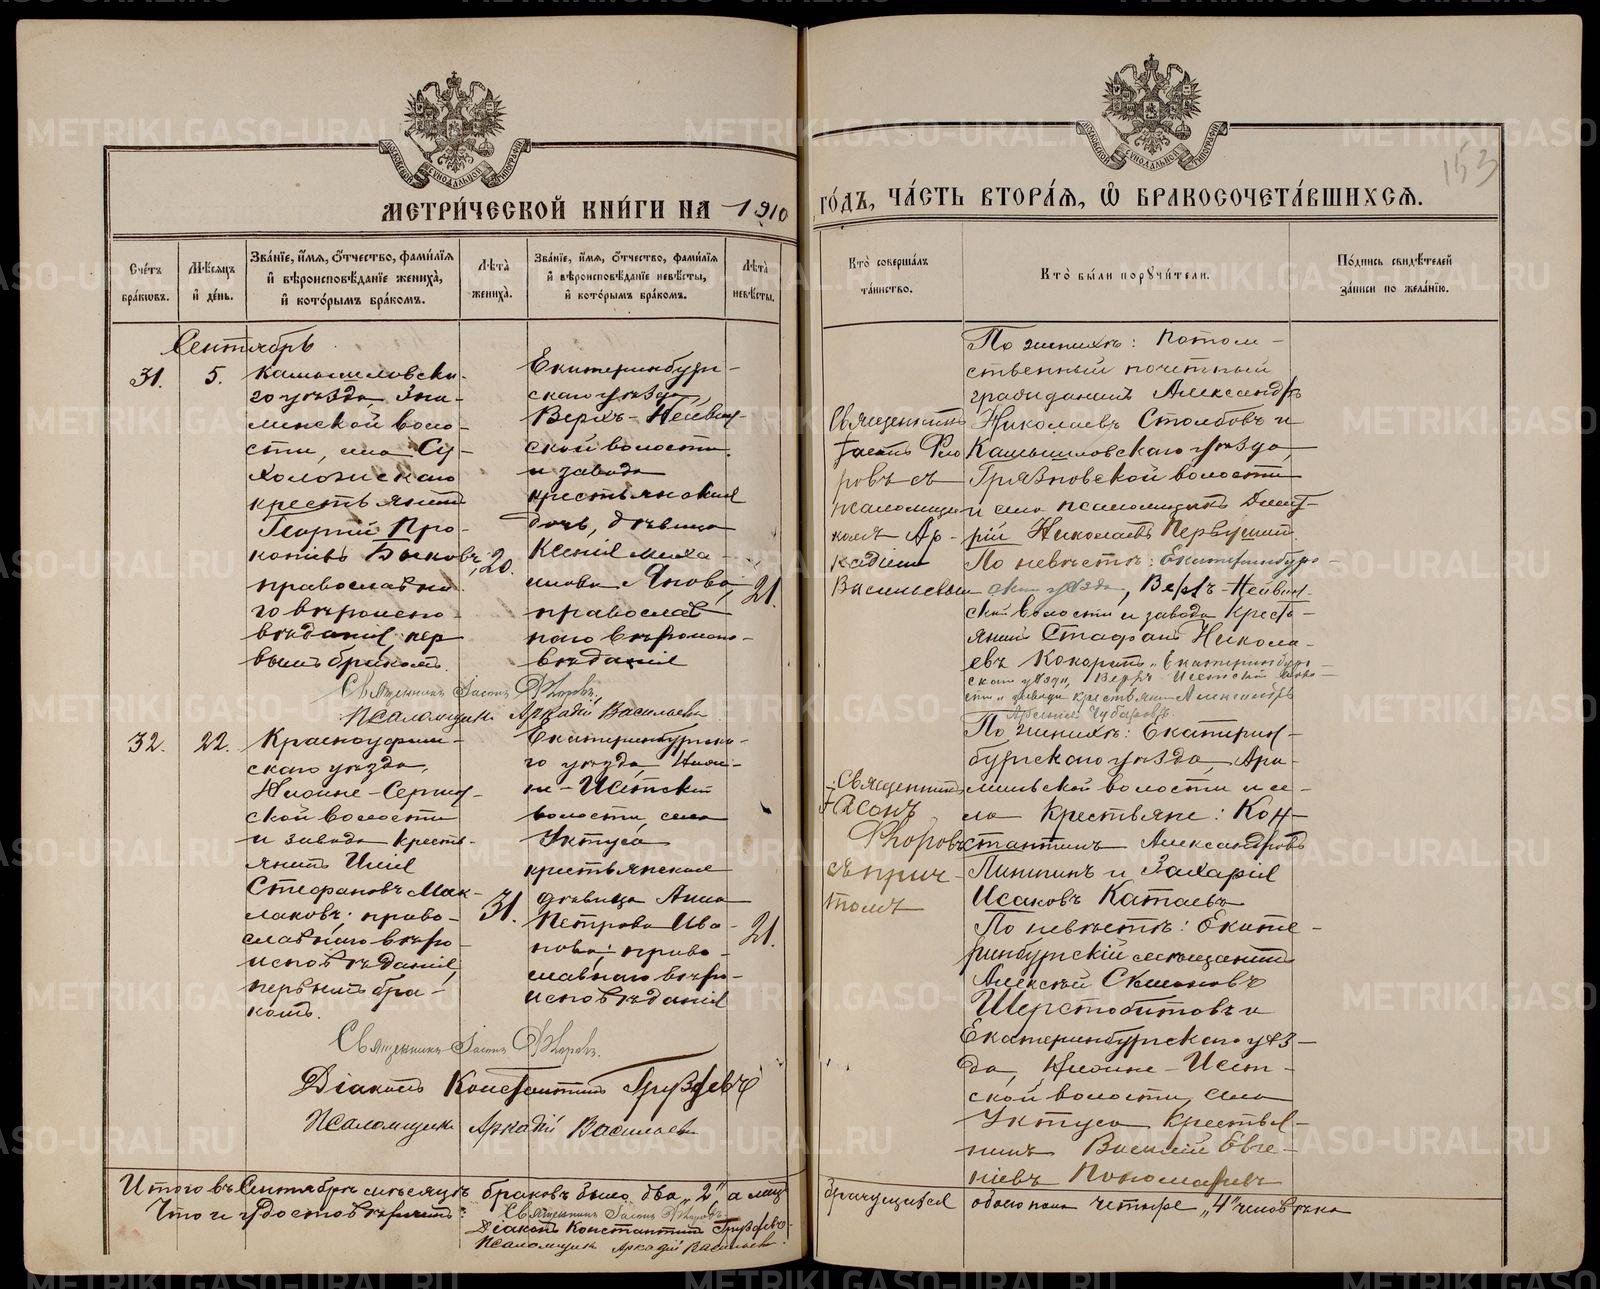 МЕТРИ́ЧЕСКОЙ КНИ́ГИ НА 1910
ГО́ДЪ, ЧА́СТЬ ВТОРА́Я, Ѡ҆ БРАКОСОЧЕТА́ВШИХСЯ.
153
Сче́тъ бра́кѡвъ.
Мѣ́сяцъ и҆ де́нь.
Зва́нїе, и҆́мя, ѻ҆́тчество, фами́лїя и҆ вѣроисповѣ́данїе жениха̀, и҆ кото́рымъ бра́комъ.
Лѣ́та̀ жениха̀.
Зва́нїе, и҆́мя, ѻ҆́тчество, фами́лїя и҆ вѣроисповѣ́данїе невѣ́сты, и҆ кото́рымъ бра́комъ.
Лѣ́та̀ невѣ́сты.
Кто̀ соверша́лъ та́инство.
Кто̀ бы́ли порꙋчи́тели.
По́дпись свидѣ́телей за́писи по жела́нїю.
Сентябрь
31.
5.
Камышловска-
го уѣзда, Зна-
менской воло-
сти, села Су-
холожскаго
крестьянинъ
Георгій Про-
копіевъ Быковъ,
православна-
го вѣроиспо-
вѣданія, пер
вымъ бракомъ.
20.
Екатеринбург-
скаго уѣзда,
Верхъ-Нейвин-
ской волости
и завода
крестьянская
дочь, дѣвица
Ксенія Миха-
илова Янова,
православ
наго вѣроиспо-
вѣданія
21.
Священникъ
Іасонъ Ѳео
ровъ съ
псаломщи
комъ Ар-
кадіемъ
Васильевым
По женихѣ: Потом-
ственный почетный
гражданинъ Александръ
Николаевъ Столбовъ и
Камышловскаго уѣзда,
Грязновской волости
и села псаломщикъ Дмит-
рій Николаевъ Первушинъ.
По невѣстѣ: Екатеринбург-
скаго уѣзда, Верхъ-Нейвин-
ской волости и завода кресть-
янинъ Стефанъ Никола-
евъ Кокаринъ и Екатеринбург-
скаго уѣзда, Верхъ Исетской воло-
сти и завода крестьянинъ Александръ
Чубаровъ
Священникъ Іасонъ Ѳлоровъ.
Псаломщикъ Аркадій Васильевъ
32.
22.
Красноуфим-
скаго уѣзда,
Нижне-Сергин-
ской волости
и завода кресть-
янинъ Илія
Стефановъ Мак-
лаковъ; право-
славнаго вѣро-
исповѣданія,
первымъ бра-
комъ.
31.
Екатеринбургска-
го уѣзда, Ниж-
не-Исетской
волости, села
Уктуса
крестьянская
дѣвица Анна
Петрова Ива-
нова; право-
славнаго вѣро-
исповѣданія
21.
Священникъ
Іасонъ
Ѳлоровъ
съ прич-
томъ
По женихѣ: Екатерин-
бургскаго уѣзда, Ара-
мильской волости и се-
ла крестьяне: Кон-
стантинъ Александровъ
Липинъ и Захарія
Исаковъ Катаевъ
По невѣстѣ: Екате-
ринбургскій мѣщанинъ
Алексѣй Симоновъ
Шерстобитовъ и
Екатеринбургскаго уѣз-
да, Нижне-Исет-
ской волости, села
Уктуса крестья-
нинъ Василій Евге-
ніевъ Пономаревъ
Священникъ Іасонъ Ѳлоровъ.
Діаконъ Константинъ Груздевъ
Псаломщикъ Аркадій Васильевъ
Итого въ Сентябрѣ мѣсяцѣ браковъ было два „2“, а лицъ
брачущихся обоего пола четыре „4“ человѣка
Что и удостовѣряемъ: Священникъ Іасонъ Ѳлоровъ
Діаконъ Константинъ Груздевъ
Псаломщикъ Аркадій Васильевъ.
METRIKI.GASO-URAL.RU